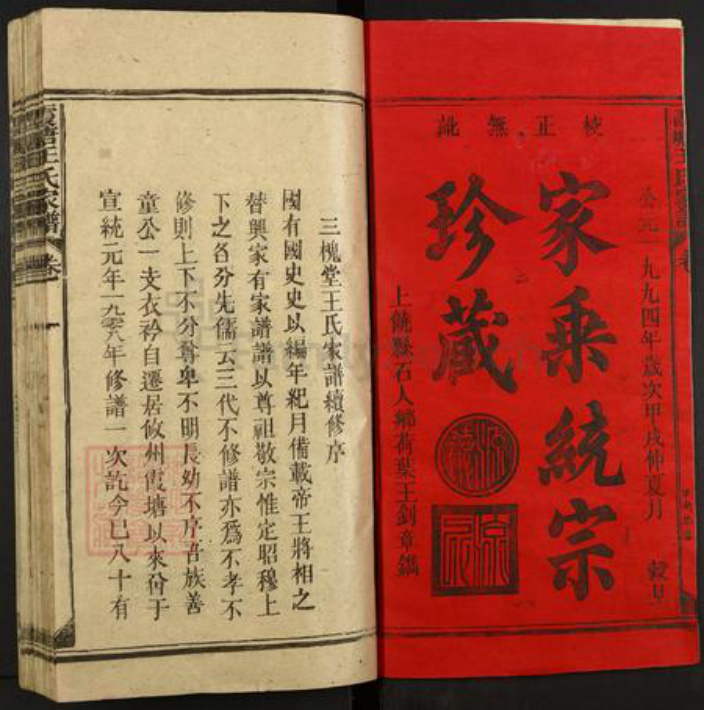 校正無訛
公元一九九四年歲次甲戌仲夏月 穀旦
家乘統宗
珍藏
上饒縣石人鄉荷葉王釗章鐫
三槐堂王氏家譜續修序
國有國史史以編年紀月備載帝王將相之
替興家有家譜譜以尊祖敬宗惟定昭穆上
下之各分先儒云三代不修譜亦爲不孝不
修則上下不分尊卑不明長幼不序吾族善
童公一支衣衿自遷居攸州霞塘以來份于
宣統元年一九零八年修譜一次訖今已八十有
霞塘王氏家譜 卷一